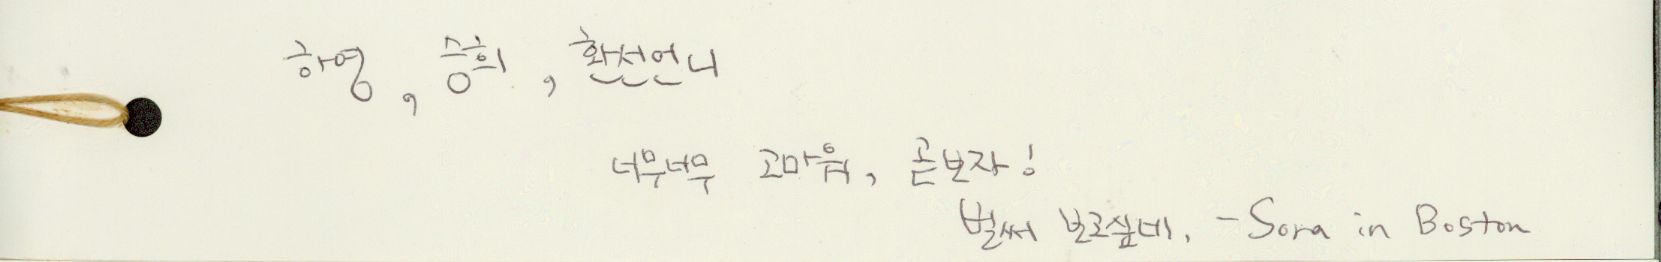 하영, 승희, 환선언니
너무너무 고마워, 곧보자!
벌써 보고싶네. - Sora in Boston